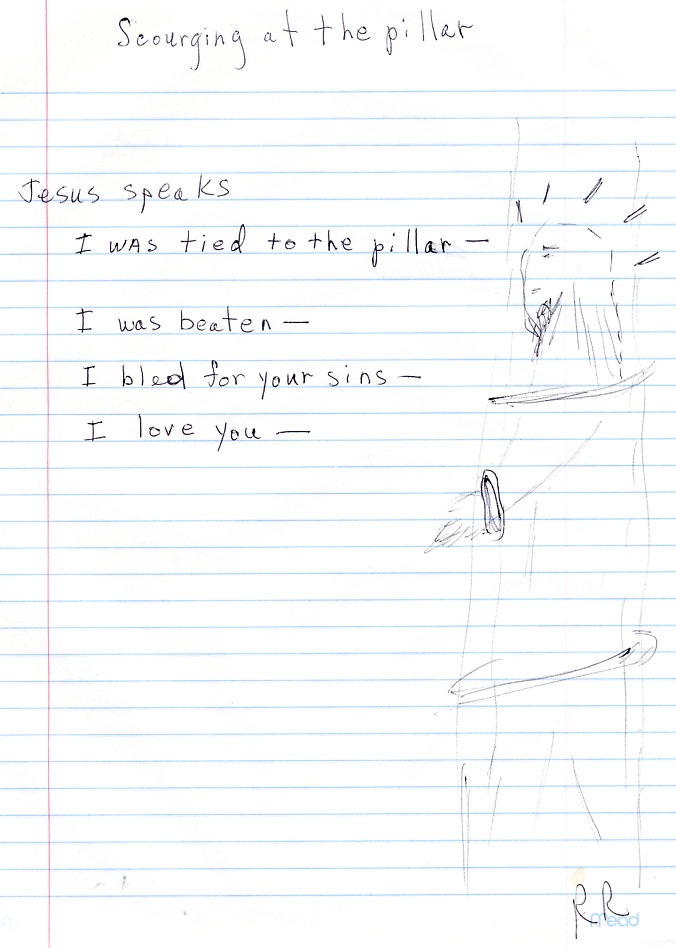 Scourging at the pillar
Jesus speaks
I WAS tied to the pillar —
I was beaten —
I bled for your sins —
I love you —
RR
Mead